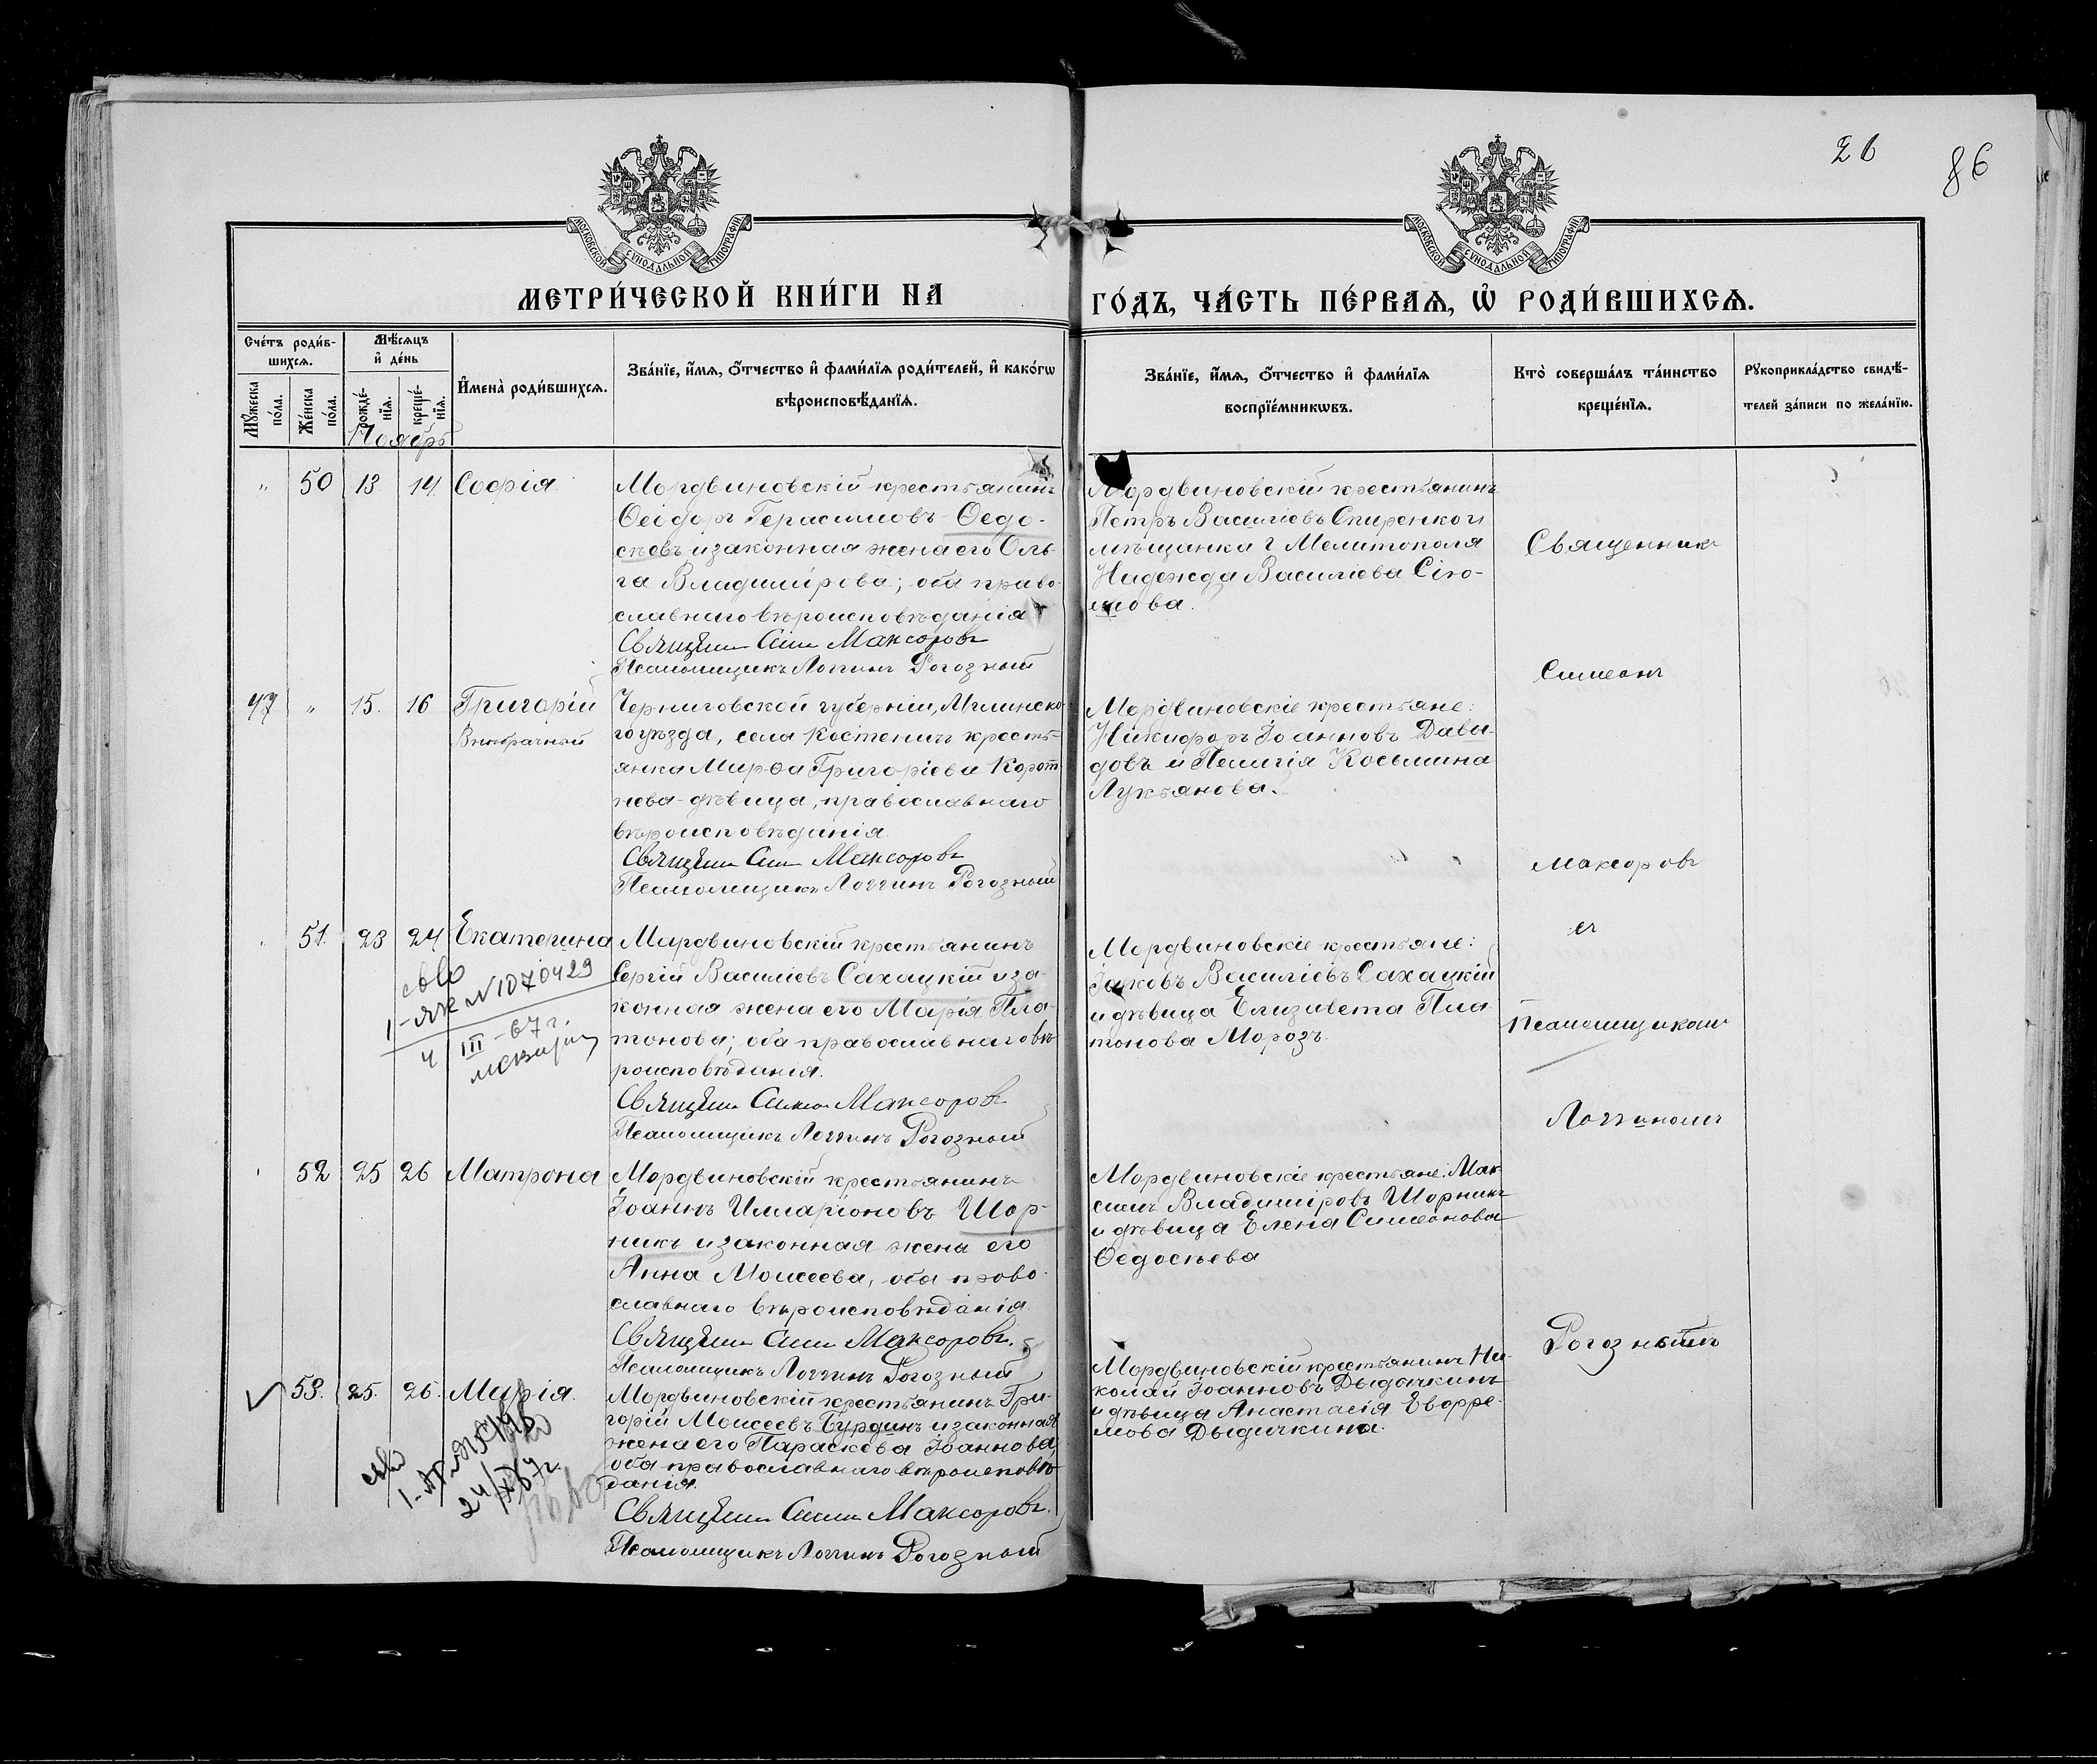 26
86
МОСКОВСКОЙ СѴНОДАЛЬНОЙ ТИПОГРАФІИ
МОСКОВСКОЙ СѴНОДАЛЬНОЙ ТИПОГРАФІИ
МЕТРИ́ЧЕСКОЙ КНИ́ГИ НА
ГО́ДЪ, ЧА́СТЬ ПЕ́РВАѦ, Ѡ҆ РОДИ́ВШИХСѦ.
Сче́тъ роди́в-
шихсѧ.
Мꙋ́жеска по́ла.
Же́нска по́ла.
Мѣ́сѧцъ
и҆ де́нь
рожде́-
нїѧ.
креще́-
нїѧ.
И҆мена̀ роди́вшихсѧ.
Зва́нїе, и҆́мѧ, ѻ҆́тчество и҆ фами́лїѧ роди́телей, и҆ како́гѡ
вѣроисповѣ́данїѧ.
Зва́нїе, и҆́мѧ, ѻ҆́тчество и҆ фами́лїѧ
воспрїе́мникѡвъ.
Кто̀ соверша́лъ та́инство
креще́нїѧ.
Рꙋкоприкла́дство свидѣ́-
телей за́писи по жела́нїю.
Ноябрь
„ 50 13 14 Софія
Мордвиновскій крестьянинъ
Ѳеодоръ Герасимовъ Ѳедо-
сѣевъ и законная жена его Оль-
га Владимірова; оба право-
славнаго вѣроисповѣданія
Священ. Сим Максоровъ
Псаломщикъ Логгинъ Рогозный
Мордвиновскій крестьянинъ
Петръ Василіевъ Спиренко и
мѣщанка г. Мелитополя
Надежда Василіева
Священникъ
Симеонъ
47 „ 15. 16 Григорій
Внѣбрачный
Черниговской губерніи, Мглинска-
го уѣзда, села Костеничъ кресть-
янка Марѳа Григоріева Корот-
нева дѣвица, православнаго
вѣроисповѣданія.
Священ. Сим Максоровъ
Псаломщикъ Логгинъ Рогозный
Мордвиновскіе крестьяне:
Никифоръ Іоанновъ Давы-
довъ и Пелагія Косьмина
Лукьянова.
Максоровъ
съ
51. 23 24 Екатерина
Мордвиновскій крестьянинъ
Сергій Василіевъ Сахацкій и за-
конная жена его Марія Пла-
тонова; оба православнаго вѣ-
роисповѣданія.
Священ. Симеон Максоровъ
Псаломщикъ Логгинъ Рогозный
Мордвиновскіе крестьяне:
Іаковъ Василіевъ Сахацкій
и дѣвица Елизавета Пла-
тонова Морозъ.
Псаломщикомъ
Логгиномъ
св-во
I-ЯЖ N 1070429
4 III-67г.
52 25 26 Матрона
Мордвиновскій крестьянинъ
Іоаннъ Илларіоновъ Шор-
никъ и законная жена его
Анна Моисеева, оба право-
славнаго вѣроисповѣданія.
Священ. Сим Максоровъ.
Псаломщикъ Логгинъ Рогозный
Мордвиновскіе крестьяне: Мак-
симъ Владиміровъ Шорникъ
и дѣвица Елена Симеонова
Ѳедосѣева
Рогознымъ
53. 25. 26. Марія.
Мордвиновскій крестьянинъ Гри-
горій Моисеевъ Бурдинъ и законная
жена его Параскева Іоаннова,
оба православнаго вѣроисповѣ-
данія.
Священ. Сим Максоровъ.
Псаломщикъ Логгинъ Рогозный
Мордвиновскій крестьянинъ Ни-
колай Іоанновъ Дыдычкинъ
и дѣвица Анастасія Евфре-
мова Дыдычкина.
св-во